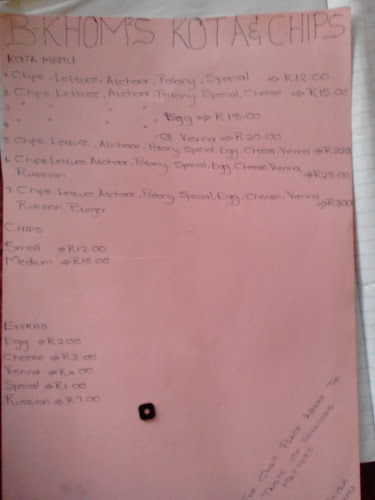 B-KHOM'S KOTA & CHIPS
KOTA MENU
1 Chips, Lettuce, Atchaar, Polony, Special ⇒ R12.00
2 Chips, Lettuce, Atchaar, Polony, Special, Cheese ⇒ R15.00
3 " " " " " Egg ⇒ R18.00
4 " " " " " Vienna ⇒ R20.00
5 Chips, Lettuce, Atchaar, Polony, Special, Egg, Cheese, Vienna ⇒ R22.0
6 Chips, Lettuce, Atchaar, Polony, Special, Egg, Cheese, Vienna
Russian ⇒ R28.00
7 Chips, Lettuce, Atchaar, Polony, Special, Egg, Cheese, Vienna
Russian, Burger
CHIPS
Small ⇒ R12.00
Medium ⇒ R18.00
EXTRAS
Egg ⇒ R2.00
Cheese ⇒ R3.00
Vienna ⇒ R4.00
Special ⇒ R1.00
Russian ⇒ R7.00
Only Place Where The
Taste of Potatoes
Matters